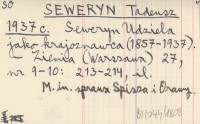 50
SEWERYN Tadeusz
1937 c. Seweryn Udziela
jako krajoznawca (1857-1937).
- Ziemia (Warszawa) 27,
nr 9-10: 213-214, il.
M. in. sprawa Spisza i Orawy.